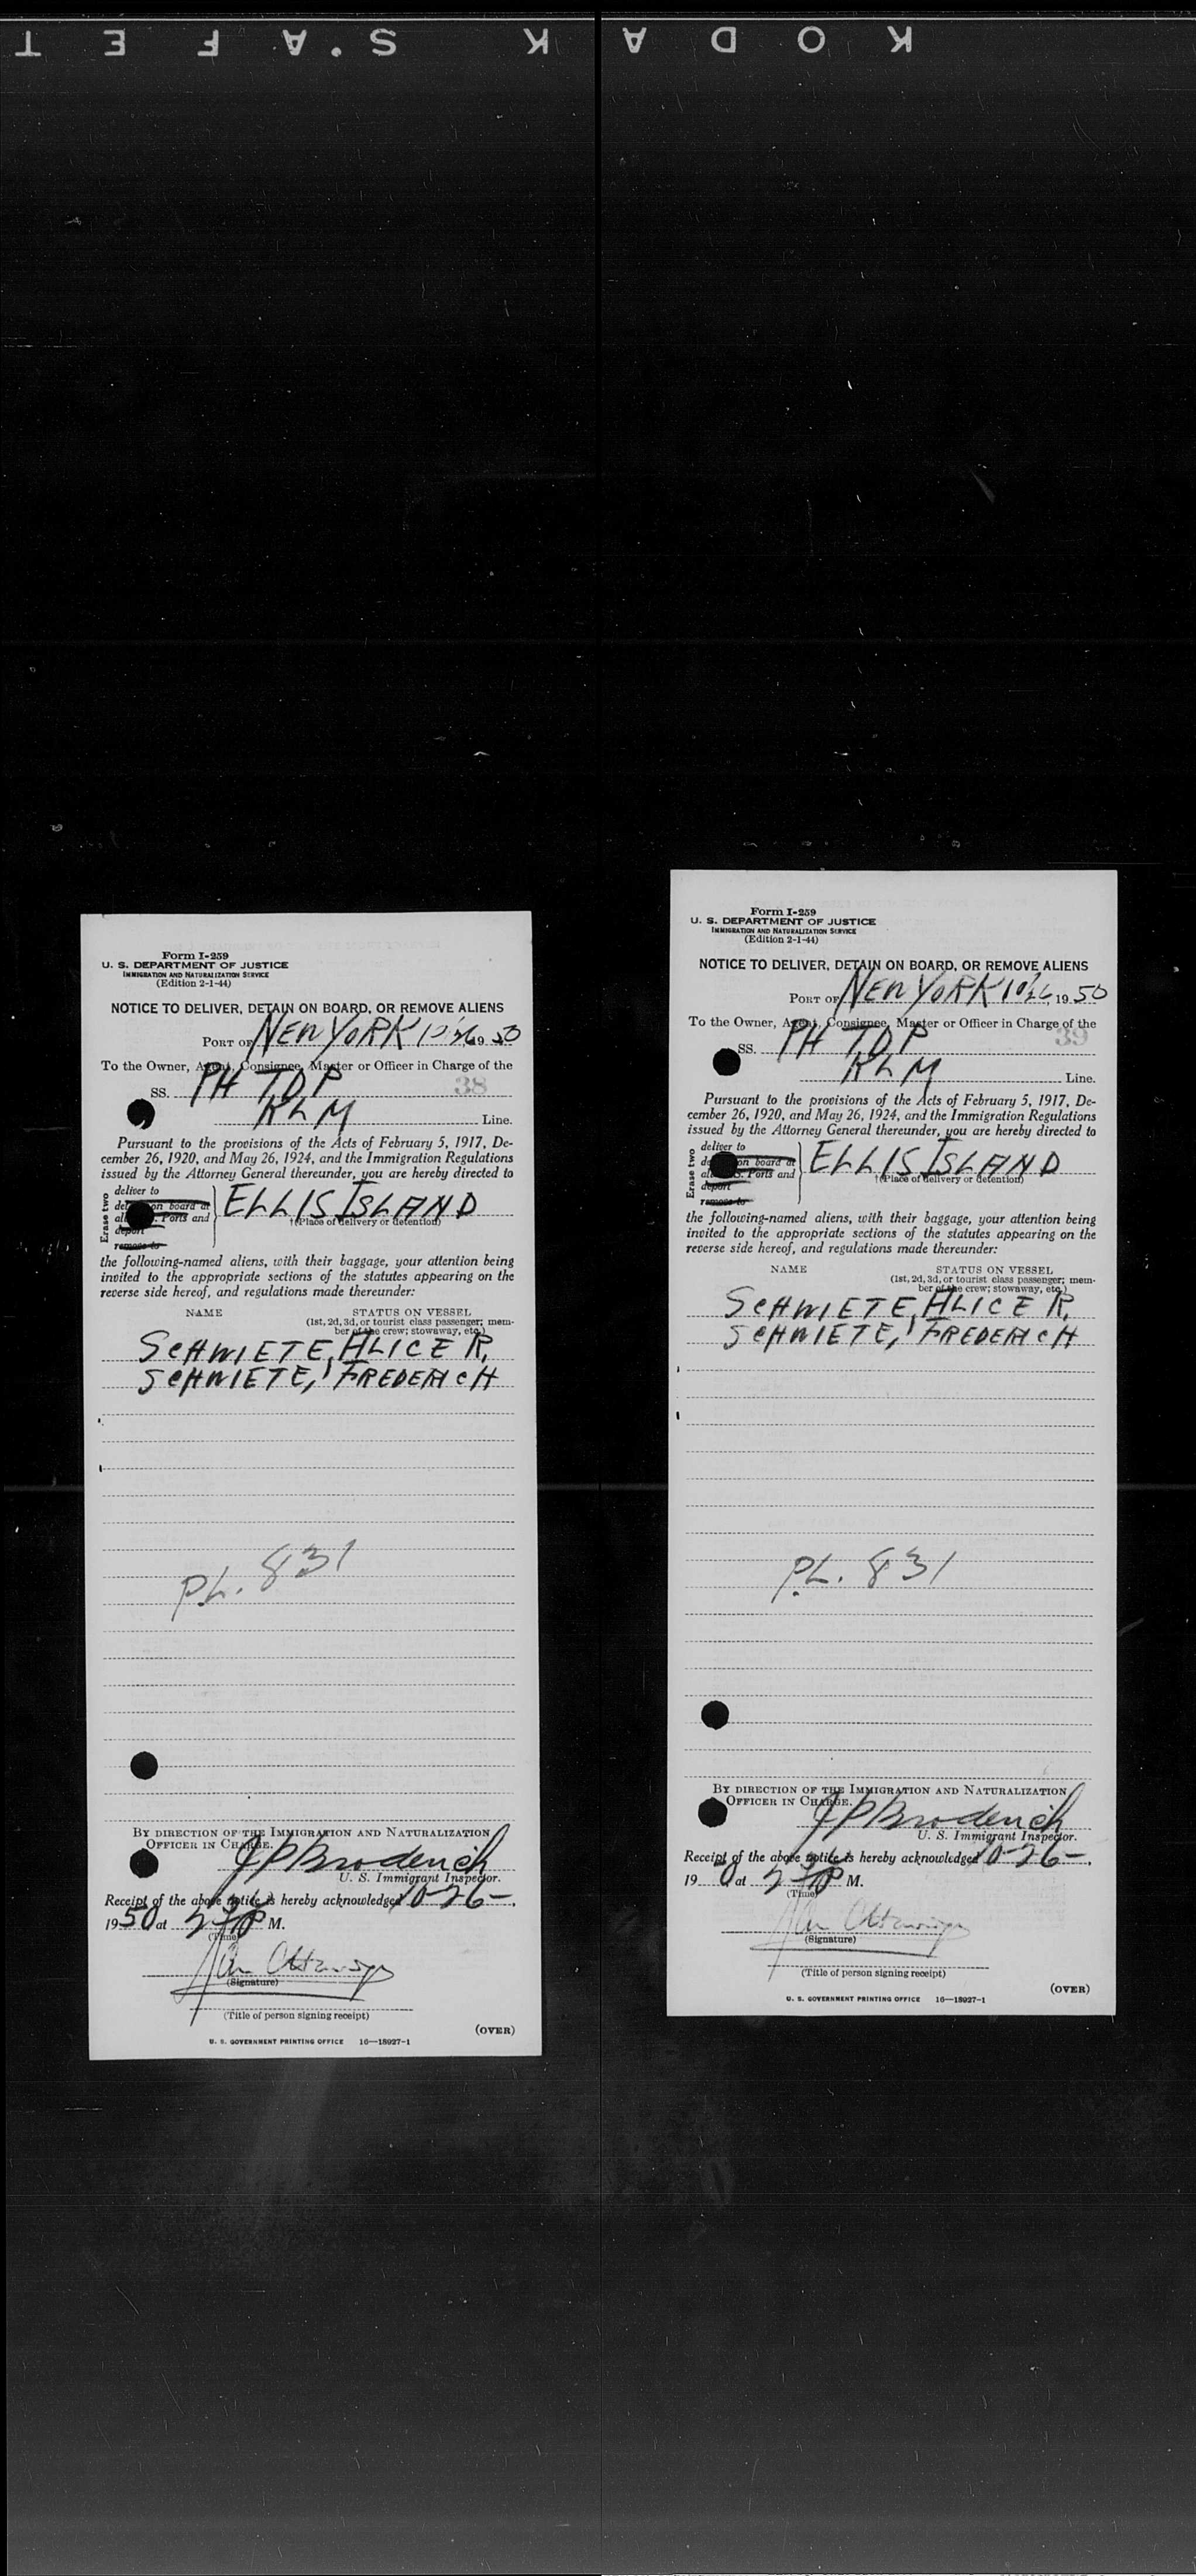 KODAK S'AFET
Form I-259
U. S. DEPARTMENT OF JUSTICE
IMMIGRATION AND NATURALIZATION SERVICE
(Edition 2-1-44)
NOTICE TO DELIVER, DETAIN ON BOARD, OR REMOVE ALIENS
PORT OF NEW YORK 10/26, 19 50
To the Owner, Agent, Consignee, Master or Officer in Charge of the
SS. PH TDP 38
KLM Line.
Pursuant to the provisions of the Acts of February 5, 1917, De-
cember 26, 1920, and May 26, 1924, and the Immigration Regulations
issued by the Attorney General thereunder, you are hereby directed to
Erase two
deliver to
on board at
Ports and
deport
remove to
ELLIS ISLAND
†(Place of delivery or detention)
the following-named aliens, with their baggage, your attention being
invited to the appropriate sections of the statutes appearing on the
reverse side hereof, and regulations made thereunder:
NAME STATUS ON VESSEL
(1st, 2d, 3d, or tourist class passenger; mem-
ber of the crew; stowaway, etc.)
SCHWIETE, ALICE R.
SCHWIETE, FREDERICH
PL. 831
BY DIRECTION OF THE IMMIGRATION AND NATURALIZATION
OFFICER IN CHARGE.
J P Broderick
U. S. Immigrant Inspector.
Receipt of the above notice is hereby acknowledged 10-26-,
1950 at 2 30 P M.
(Time)
(Signature)
(Title of person signing receipt)
(OVER)
U. S. GOVERNMENT PRINTING OFFICE 16—18927-1
Form I-259
U. S. DEPARTMENT OF JUSTICE
IMMIGRATION AND NATURALIZATION SERVICE
(Edition 2-1-44)
NOTICE TO DELIVER, DETAIN ON BOARD, OR REMOVE ALIENS
PORT OF NEW YORK 10/26, 19 50
To the Owner, Agent, Consignee, Master or Officer in Charge of the
SS. PH TDP 39
KLM Line.
Pursuant to the provisions of the Acts of February 5, 1917, De-
cember 26, 1920, and May 26, 1924, and the Immigration Regulations
issued by the Attorney General thereunder, you are hereby directed to
Erase two
deliver to
on board at
Ports and
deport
remove to
ELLIS ISLAND
†(Place of delivery or detention)
the following-named aliens, with their baggage, your attention being
invited to the appropriate sections of the statutes appearing on the
reverse side hereof, and regulations made thereunder:
NAME STATUS ON VESSEL
(1st, 2d, 3d, or tourist class passenger; mem-
ber of the crew; stowaway, etc.)
SCHWIETE, ALICE R.
SCHWIETE, FREDERICH
PL. 831
BY DIRECTION OF THE IMMIGRATION AND NATURALIZATION
OFFICER IN CHARGE.
J P Broderick
U. S. Immigrant Inspector.
Receipt of the above notice is hereby acknowledged 10-26-,
19 0 at 2 30 P M.
(Time)
(Signature)
(Title of person signing receipt)
(OVER)
U. S. GOVERNMENT PRINTING OFFICE 16—18927-1